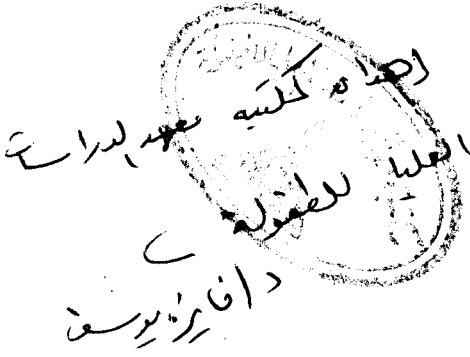 اهداء لمكتبه معهد الدراسات
العليا للطفوله
د/ فايزه يوسف